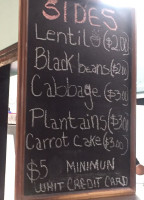 SIDES
Lentils ($2.00)
Black beans ($2.00)
Cabbage ($3.00)
Plantains ($3.00)
Carrot Cake ($3.00)
$5 MINIMUN
WHIT CREDIT CARD